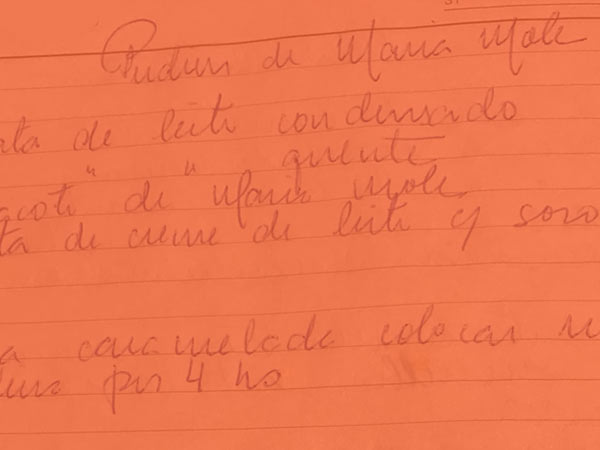 Pudim de Maria Mole
ata de leite condensado
" " quente
acote de Maria Mole
ta de creme de leite c/ soro
a caramelada colocar
por 4 hs